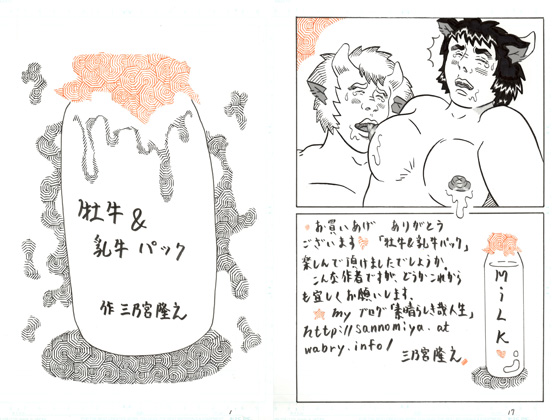 牡牛
&
乳牛 パック
作 三乃宮隆之
1
お買いあげ ありがとう
ございます「牡牛&乳牛パック」
楽しんで頂けましたでしょうか。
こんな作者ですが、どうかこれから
も宜しくお願いします。
my ブログ「素晴らしき哉人生」
http://sannomiya.at
wabry.info/
三乃宮隆之
MiLK
17